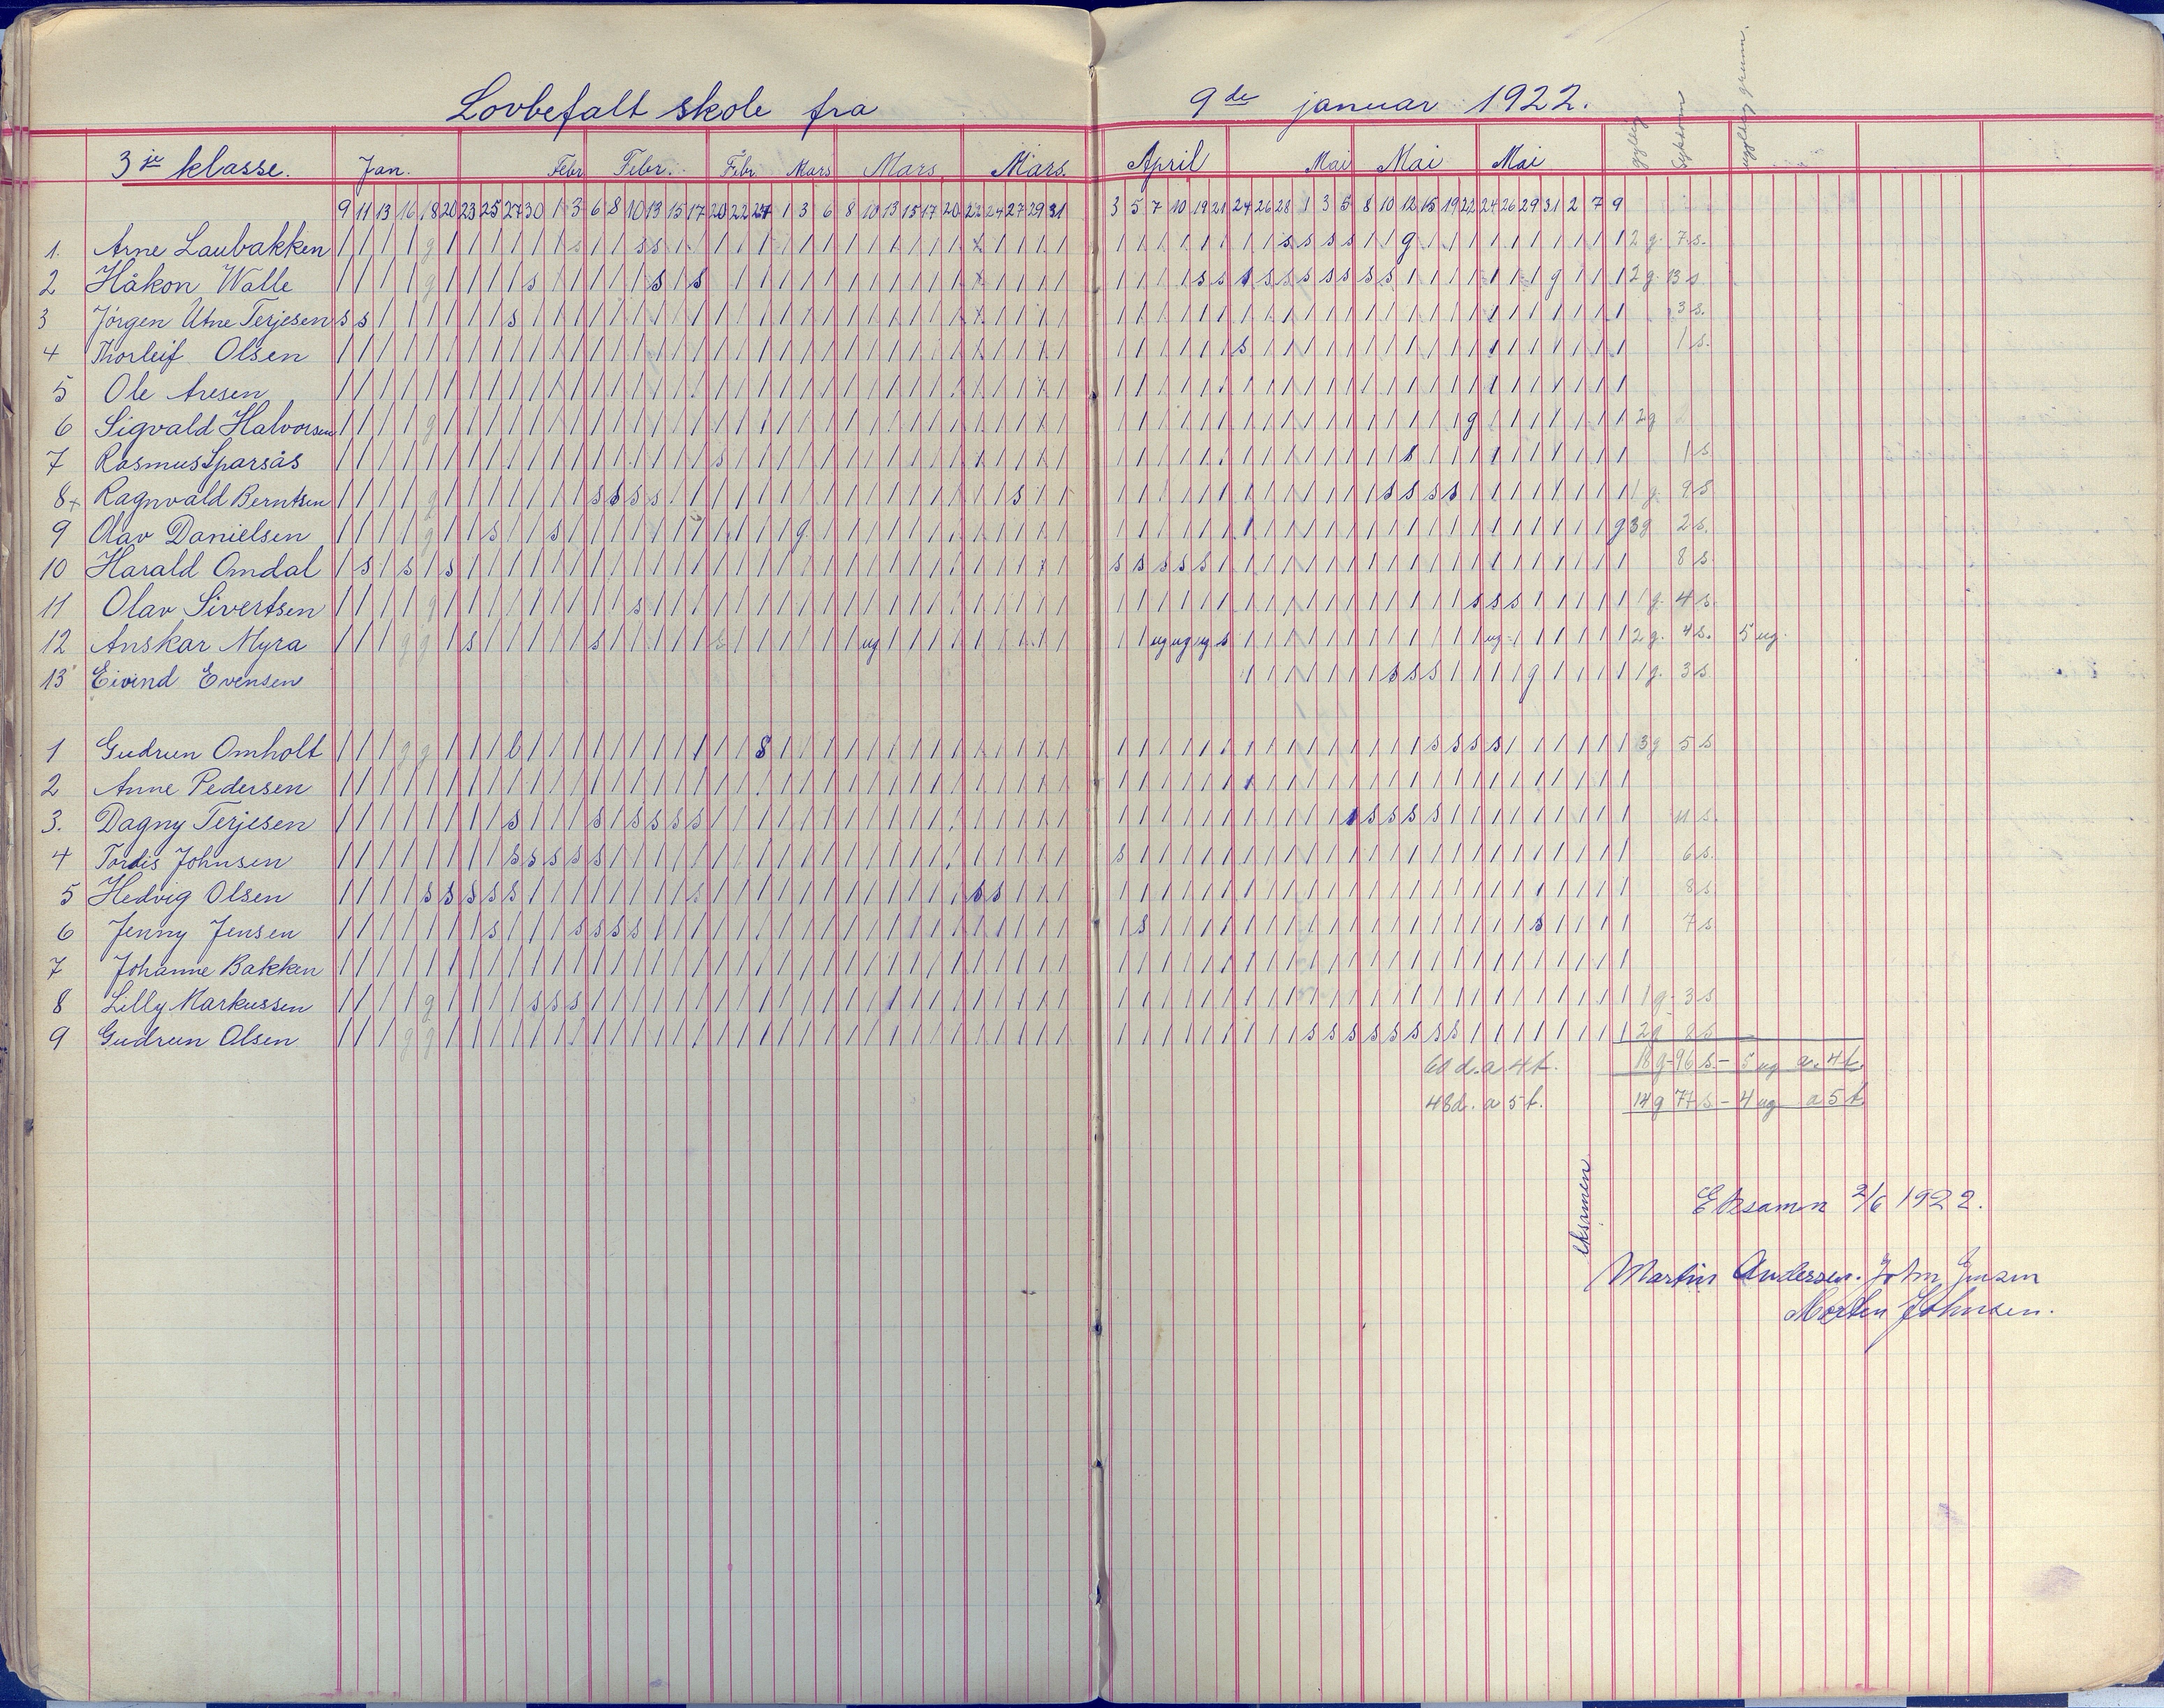 Lovbefalt skole fra 9de januar 1922.
gyldig sykdom ugyldig grunn.
3je klasse. Jan. Febr Febr. Febr Mars Mars. Mars. April Mai Mai Mai
9 11 13 16 18 20 23 25 27 30 1 3 6 8 10 13 15 17 20 22 24 1 3 6 8 10 13 15 17 20 22 24 27 29 31 3 5 7 10 19 21 24 26 28 1 3 5 8 10 12 15 19 22 24 26 29 31 2 7 9
1. Arne Laubakken 2 g. 7 s.
2 Håkon Walle 2 g 13 s
3 Jörgen Utne Terjesen 3 s.
4 Thorleif Olsen 1 s.
5 Ole Aresen
6 Sigvald Halvorsen 2 g
7 Rasmus Sparsås 1 s
8+ Ragnvald Berntsen 1 g. 9 s
9 Olav Danielsen 3 g 2 s.
10 Harald Omdal 8 s
11 Olav Sivertsen 1 g. 4 s.
12 Anskar Myra 2 g. 4 s. 5 ug.
13 Eivind Evensen 1 g. 3 s
1 Gudrun Omholt 3 g 5 s
2 Anne Pedersen
3. Dagny Terjesen 11 s.
4 Tordis Johnsen 6 s.
5 Hedvig Olsen 8 s
6 Jenny Jensen 7 s
7 Johanne Bakken
8 Lilly Markussen 1 g - 3 s
9 Gudrun Olsen 2 g 8 s
60 d. a 4 t. 18 g - 96 s. - 5 ug a. 4 t.
48 d. a 5 t. 14 g 77 s - 4 ug a 5 t.
eksamen
Eksamn 2/6 1922.
Martin Andersen. John Jensen
Morten Johnsen.